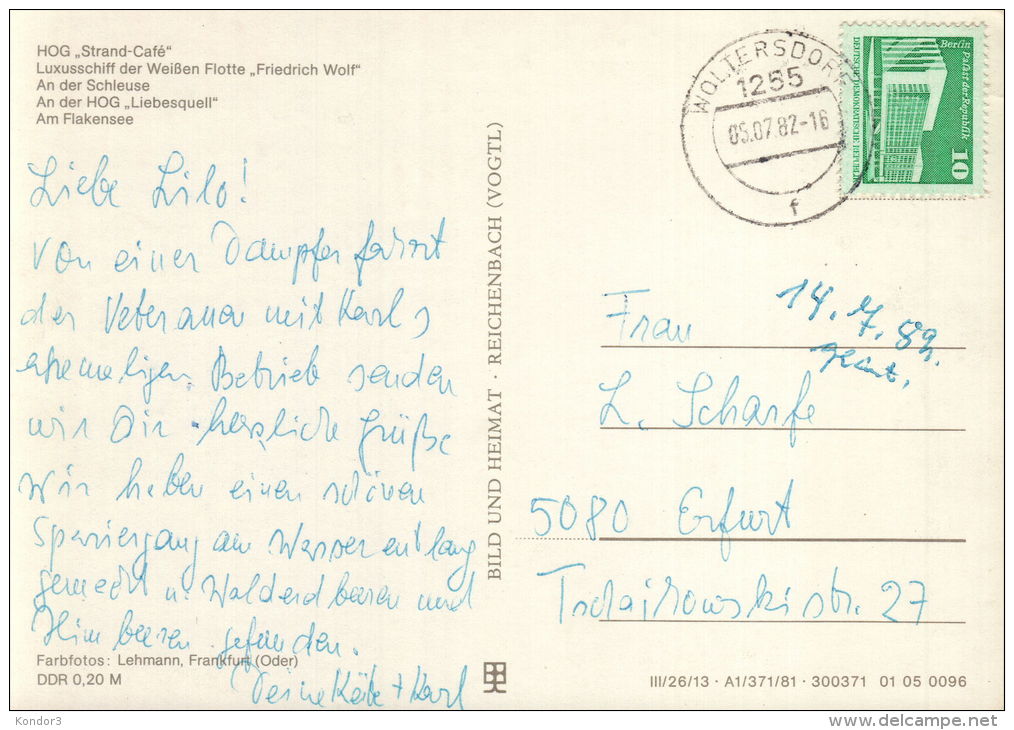 HOG „Strand-Café“
Luxusschiff der Weißen Flotte „Friedrich Wolf“
An der Schleuse
An der HOG „Liebesquell“
Am Flakensee
Liebe Lilo!
Von einer Dampferfahrt
der Veteranen mit Karls
ehemaligen Betrieb senden
wir Dir herzliche Grüße
Wir haben einen schönen
Spaziergang am Wasser entlang
gemacht u. Walderdbeeren und
Himbeeren gefunden.
Deine Käte + Karl
Farbfotos: Lehmann, Frankfurt (Oder)
DDR 0,20 M
BILD UND HEIMAT · REICHENBACH (VOGTL)
WOLTERSDORF
1255
05.07.82-16
f
Berlin Palast der Republik
DEUTSCHE DEMOKRATISCHE REPUBLIK
10
14. 7. 82.
Frau
L. Scharfe
5080 Erfurt
Tschaikowskistr. 27
III/26/13 · A1/371/81 · 300371 01 05 0096
Kondor3
delcampe.net